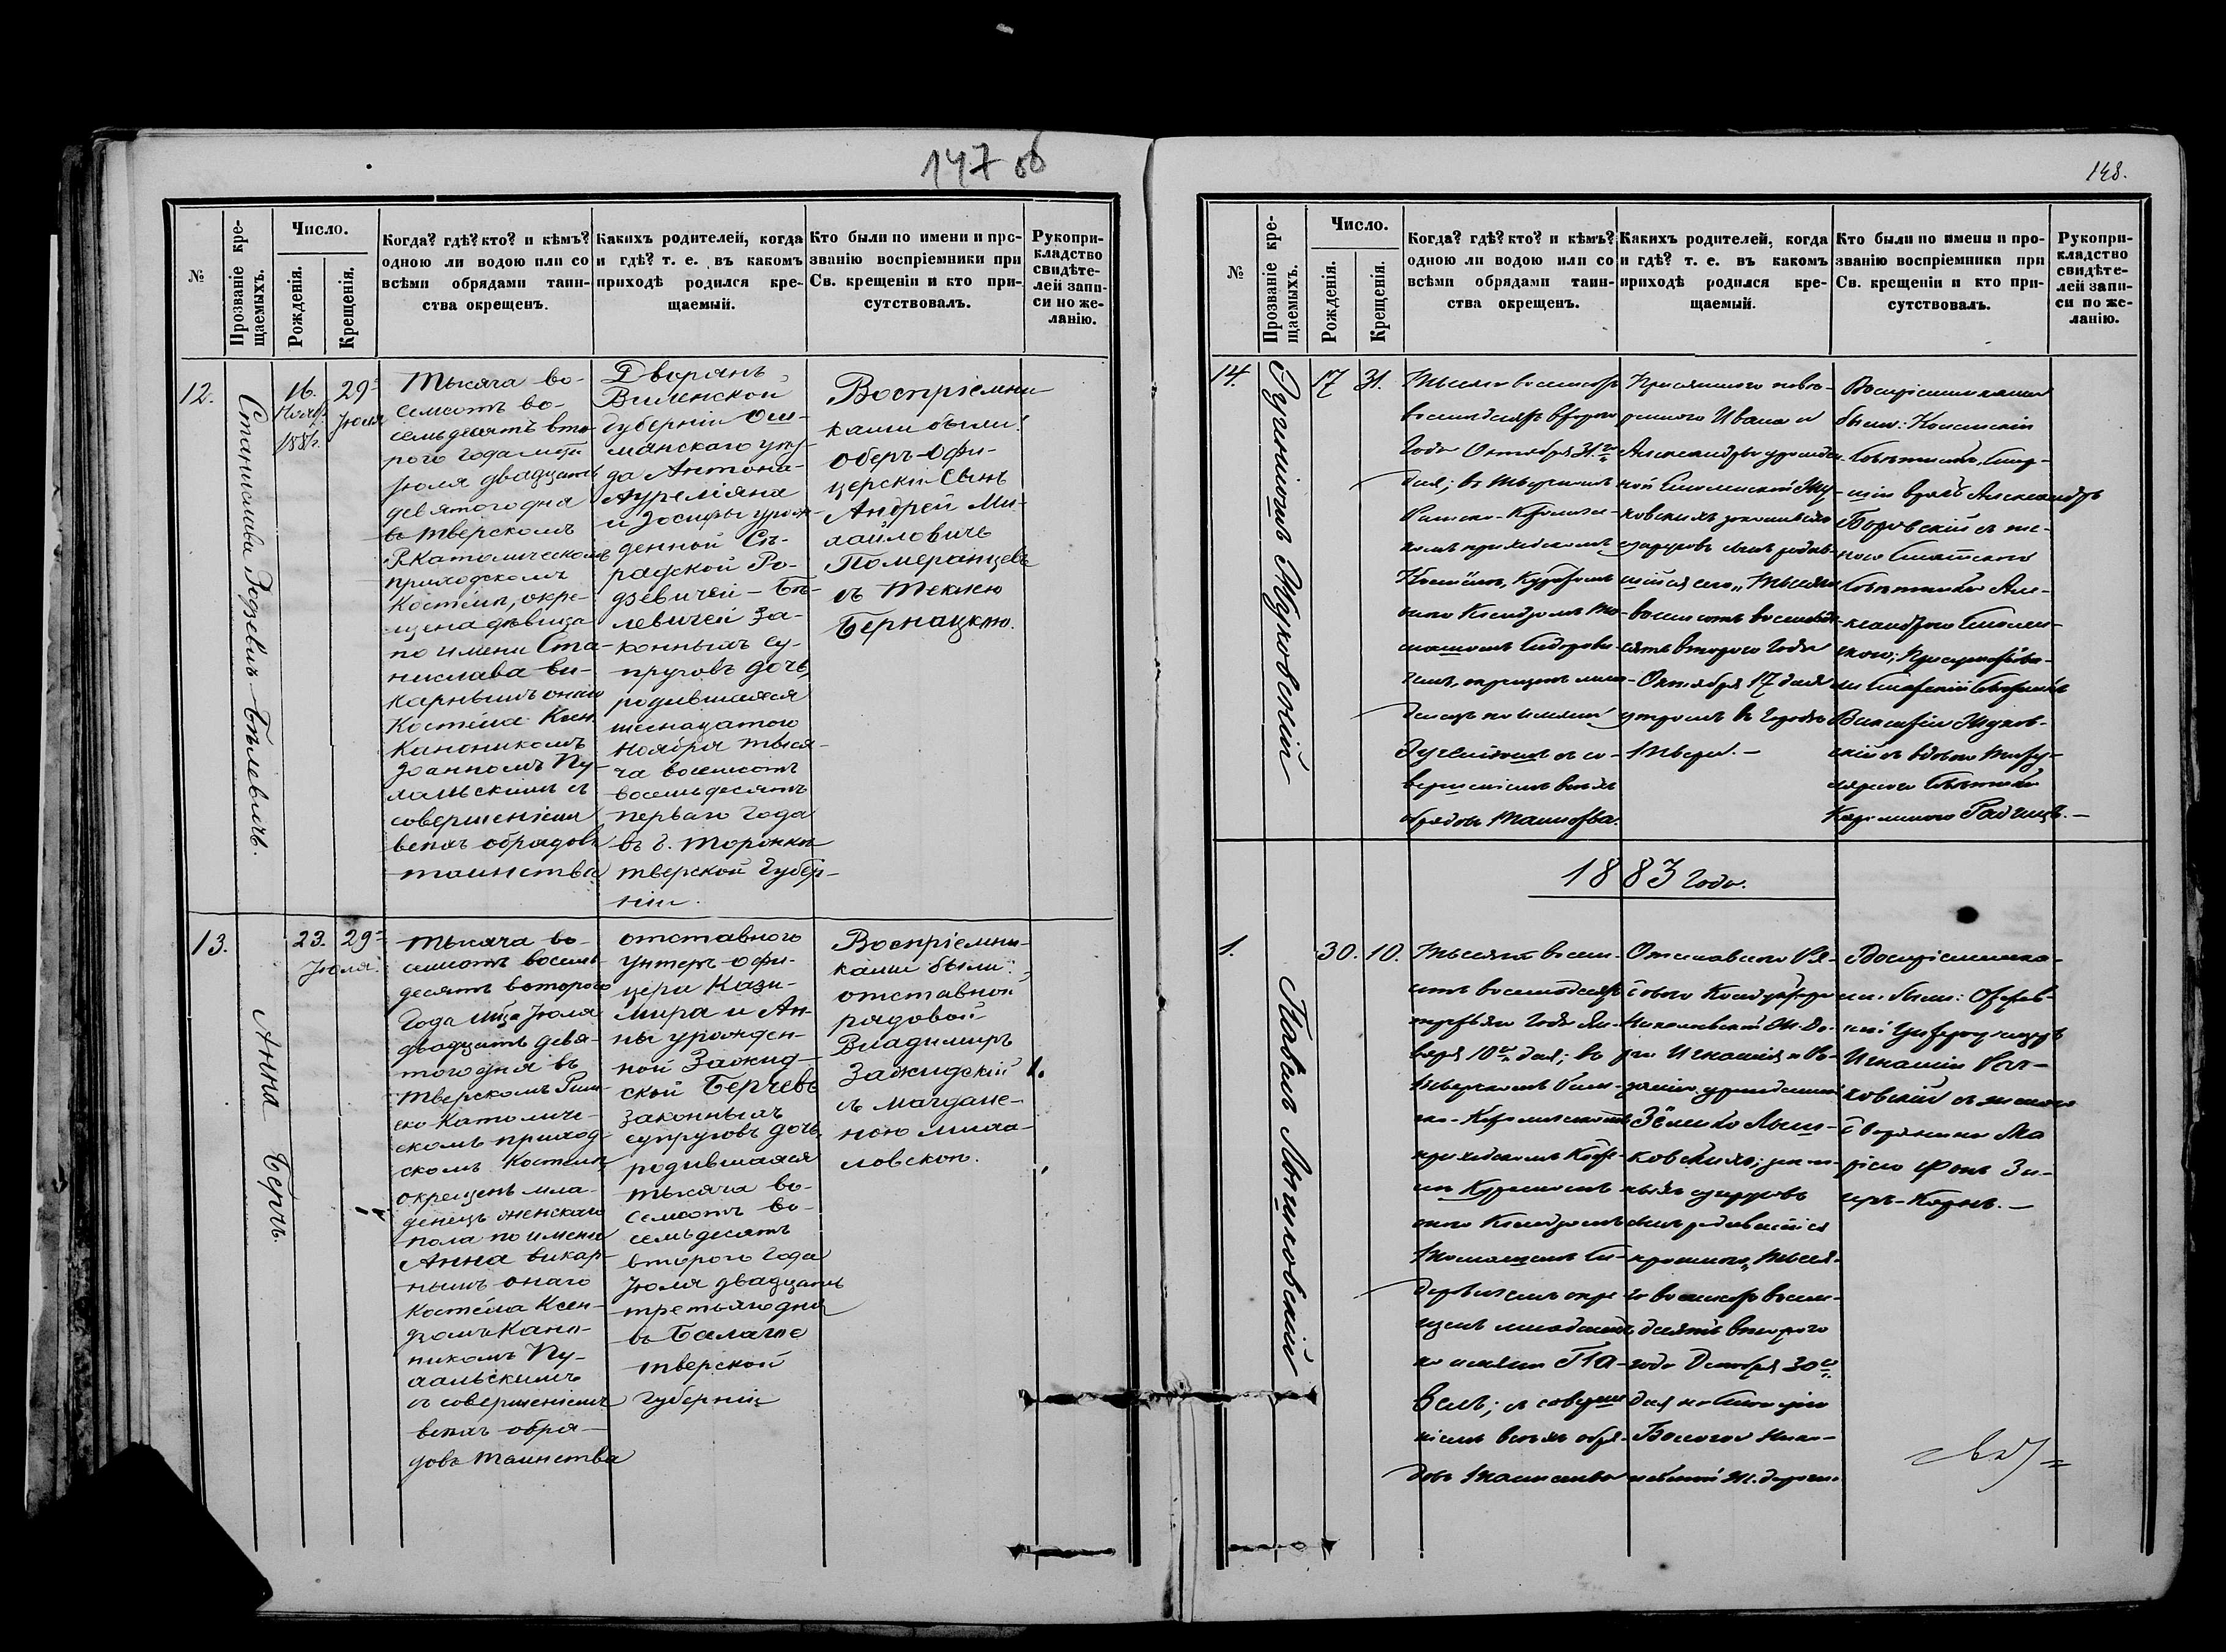 147 об
№
Прозваніе кре-
щаемыхъ.
Число.
Рожденія.
Крещенія.
Когда? гдѣ? кто? и кѣмъ?
одною ли водою или со
всѣми обрядами таин-
ства окрещенъ.
Какихъ родителей, когда
и гдѣ? т. е. въ какомъ
приходѣ родился кре-
щаемый.
Кто были по имени и про-
званію воспріемники при
Св. крещеніи и кто при-
сутствовалъ.
Рукопри-
кладство
свидѣте-
лей запи-
си по же-
ланію.
12.
Станислава Родзевичъ-Бѣлевичъ.
16.
Нояб.
1881 г.
29
Іюля
Тысяча во-
семсотъ во-
семьдесятъ вто-
рого года мца
Іюля двадцать
девятого дня
въ Тверскомъ
Р. Католическомъ
приходскомъ
Костелѣ, окре-
щена дѣвица
по имени Ста-
нислава ви-
карнымъ онаго
Костёла Ксен.
Каноникомъ
Іоанномъ Пу-
хальскимъ съ
совершеніемъ
всѣхъ обрядовъ
таинства
Дворянъ
Виленской
губерніи Ош-
мянскаго уѣз-
да Антона-
Аурелiяна
и Іосифы урож-
денной Сѣ-
рафской Ро-
дзевичей-Бѣ-
левичей за-
конныхъ су-
пруговъ дочь,
родившаяся
шеснацатого
Ноября тыся-
ча восемсотъ
восемьдесятъ
перваго года
въ г. Торжкѣ
Тверской Губер-
ніи.
Воспріемни-
ками были:
оберъ-офи-
церскій сынъ
Андрей Ми-
хайловичъ
Померанцевъ
съ Теклею
Бернацкою.
13.
Анна Берчъ.
23.
29
Іюля.
Тысяча во-
семсотъ восемь-
десятъ второго
Года мца Іюля
двадцать девя-
того дня въ
Тверскомъ Рим-
ско-Католиче-
скомъ приход-
скомъ Костелѣ
окрещенъ мла-
денецъ женскаго
пола по имени
Анна викар-
нымъ онаго
Костёла Ксен-
дзомъ Кано-
никомъ Пу-
хальскимъ
съ совершеніемъ
всѣхъ обря-
довъ Таинства
отставного
унтеръ-офи-
цера Кази-
мира и Ан-
ны урожден-
ной Зажид-
ской Берчевъ
законныхъ
супруговъ дочь,
родившаяся
тысяча во-
семсотъ во-
семьдесятъ
второго года
Іюля двадцать
третьяго дня
въ
Тверской
Губерніи
Воспріемни-
ками были:
отставной
рядовой
Владимиръ
Зажидскій
съ Магдале-
ною Миха-
ловскою.
148.
№
Прозваніе кре-
щаемыхъ.
Число.
Рожденія.
Крещенія.
Когда? гдѣ? кто? и кѣмъ?
одною ли водою или со
всѣми обрядами таин-
ства окрещенъ.
Какихъ родителей, когда
и гдѣ? т. е. въ какомъ
приходѣ родился кре-
щаемый.
Кто были по имени и про-
званію воспріемники при
Св. крещеніи и кто при-
сутствовалъ.
Рукопри-
кладство
свидѣте-
лей запи-
си по же-
ланію.
14.
Жуковскій
17
31.
Тысяча восемсотъ
восемдесятъ второго
Года Октября 31го
дня; въ Тверскомъ
Римско-Католиче-
скомъ приходскомъ
Костёлѣ, Куратомъ
онаго Ксендзомъ То-
машомъ Сидорови-
чемъ, окрещенъ мла-
денецъ по имени
съ со-
вершеніемъ всѣхъ
обрядовъ Таинства.
Присяжнаго повѣ-
реннаго Ивана и
Александры урожден-
ной Смоленской Жу-
ковскихъ законныхъ
супруговъ сынъ родив-
шійся сего „Тысяча
восемсотъ восемьде-
сятъ второго Года
Октября 17 дня
утромъ въ городѣ
Твери.
Воспріемниками
были:
Совѣтникъ,
врачъ Александръ
Боровскій съ же-
ною Статского
Совѣтника Але-
ксандрою Смолен-
скою; Присутствова-
ли Статскій Совѣтникъ
Викентій Жуков-
скій съ вдовою Титу-
лярного Совѣтника
1883 года.
1.
Павелъ Лошковскій
30.
10.
Тысяча восем-
сотъ восемьдесятъ
третьяго Года Ян-
варя 10го дня; въ
Тверскомъ Рим-
ско-Католическомъ
приходскомъ Костё-
лѣ Куратомъ
онаго Ксендзомъ
Томашомъ Си-
доровичемъ окре-
щенъ младенецъ
по имени Па-
велъ; съ соверше-
ніемъ всѣхъ обря-
довъ Таинства
Отставного Ря-
дового Кондуктора
Николаевской Ж. До-
роги Игнатія и
урожденной
законныхъ супруговъ
сынъ родившійся
прошлого „Тыся-
ча восемсотъ восемь-
десятъ второго
года Декабря 30го
дня на Станціи
Бологое Нико-
лаевской Ж. дороги.
Воспріемника-
ми были: Отстав-
ной Унтерофицеръ
Игнатій
съ женою
дворянина Ма-
ріею Фонъ